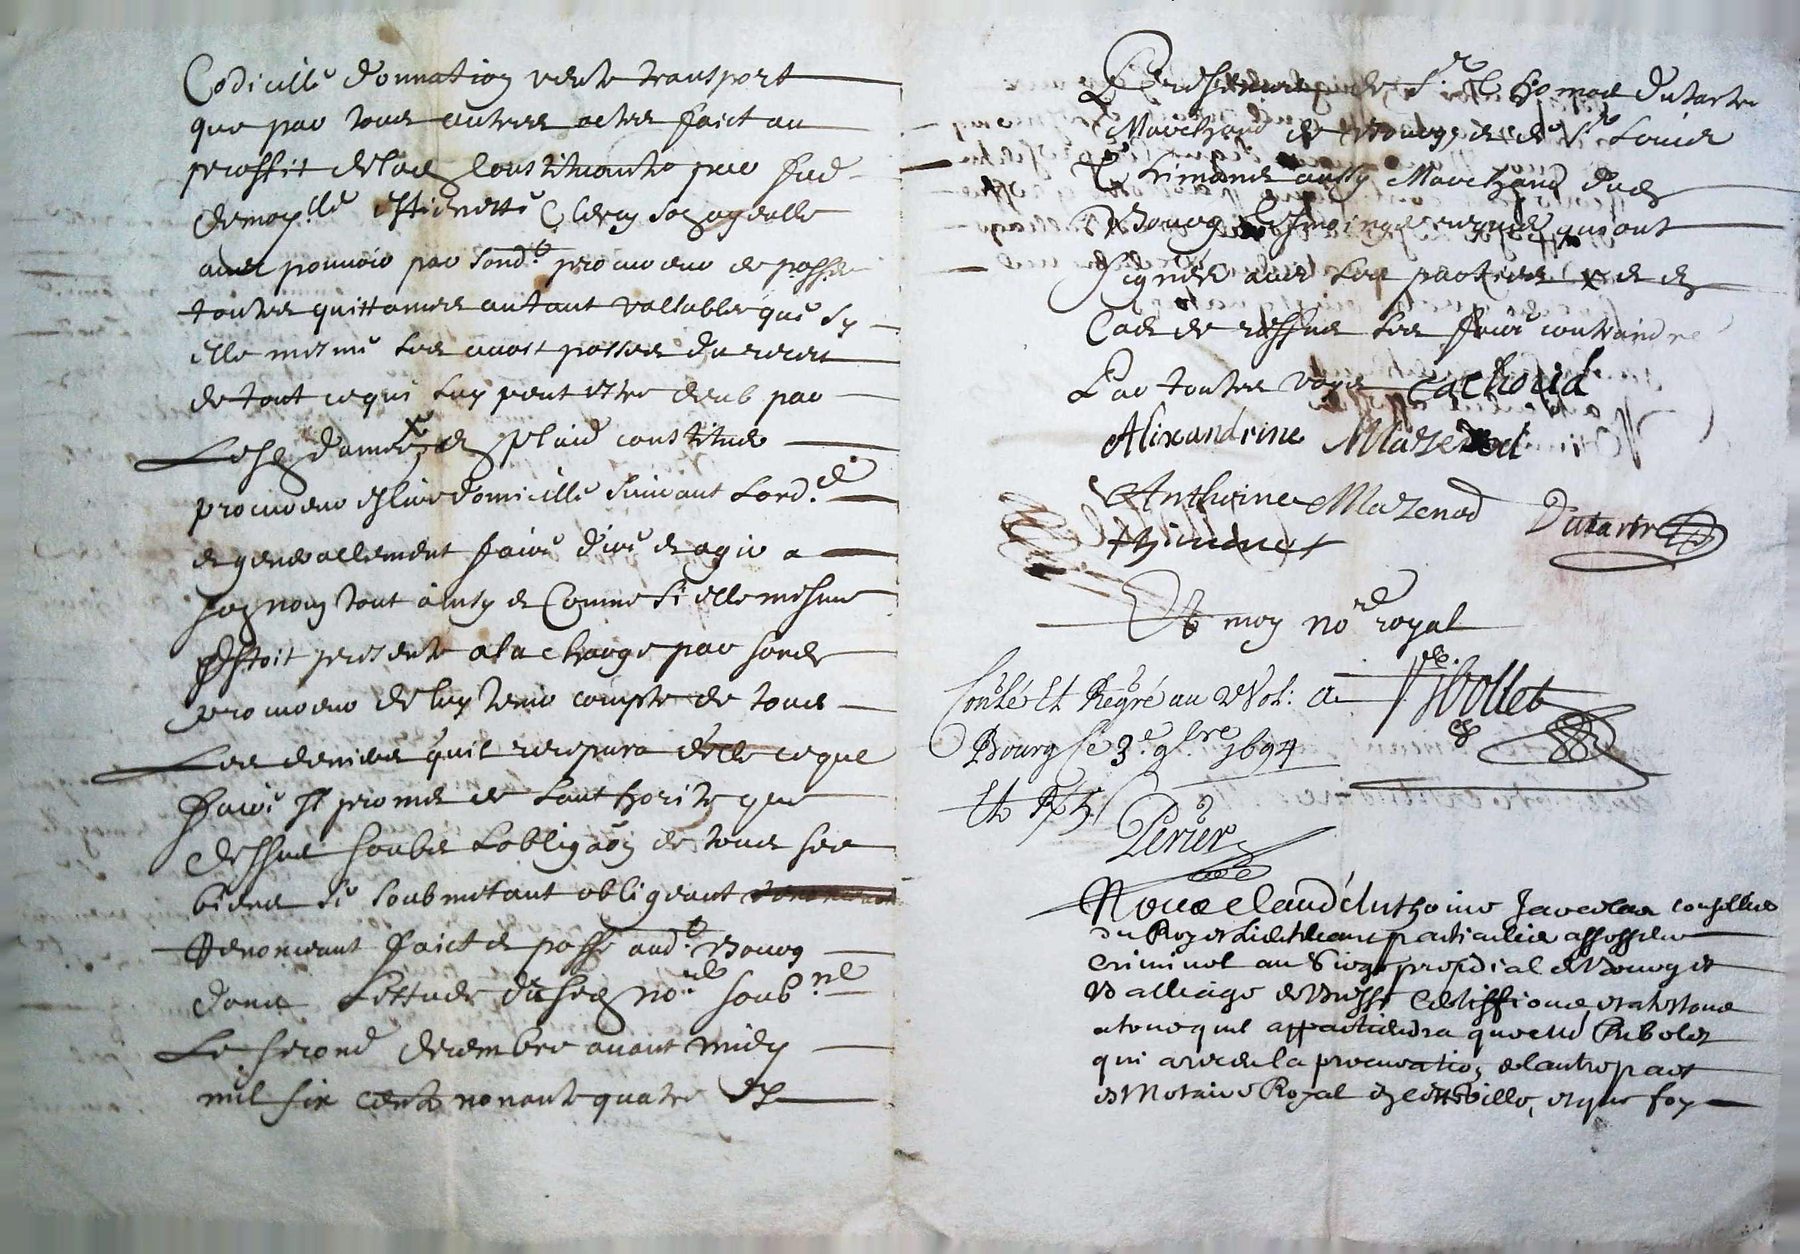 Codicille donnation vente transport
que par tous autres actes faict au
proffit de lad constituante par fud
demoylle Estiennette Clerc son ayeulle
avec pouvoir par sondt procureur de passer
touttes quittances autant vallables que sy
elle mesme les avoit passes du receu
de tout ce qui luy peut estre deub par
constitue
procureur eslire domicille suivant lord.ce
et generallement faire dire et agir a
son nom tout ainsy et Comme si elle mesme
Estoit presente a la charge par sond
procureur de luy tenir compte de tous
Les deniers quil recepvra delle ce que
faire Il promet de lauthorite que
dessus soubs lobligaon de tous ses
biens se soubmetant obligeant
Renonceant faict et passe audt Bourg
dans Lestude dud no.re soub.ne
Le second decembre avant midy
mil six cents nonante quatre En
Presence de Sr Thomas Dutartre
Marchand de Bourg et de Sr Louis
Thimonet aussy Marchand dud
Bourg tesmoins requis qui ont
Signes avec les parties et en
Cas de reffus les faire contraindre
Par touttes voyes Cachoud
Alixandrine Mazenod
Anthoine Mazenod Dutartre
Thimonet
Et moy no.re royal
Conlé Et Regré au 2 Vol: a Ribollet
Bourg le 3e 9bre 1694
Et R 5s
Perier
Nous Claude Anthoine conseiller
du Roy et Lieutenant particulier assesseur
Criminel au Siege presidial de Bourg et
Balliage de Bresse Certiffions et attestons
a tous quil appartiendra que Me Ribolet
qui a receu la procuration de lautre part
est Notaire Royal en cette ville, et que foy